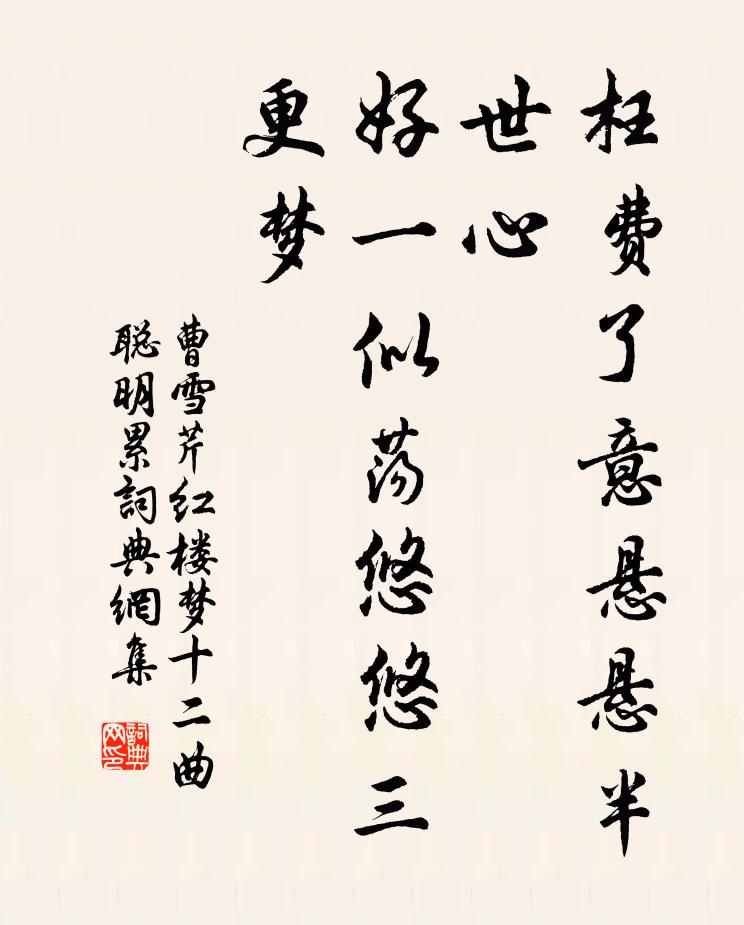 枉费了意悬悬半
世心
好一似荡悠悠三
更梦
曹雪芹红楼梦十二曲
聪明累詞典網集
詞典网印